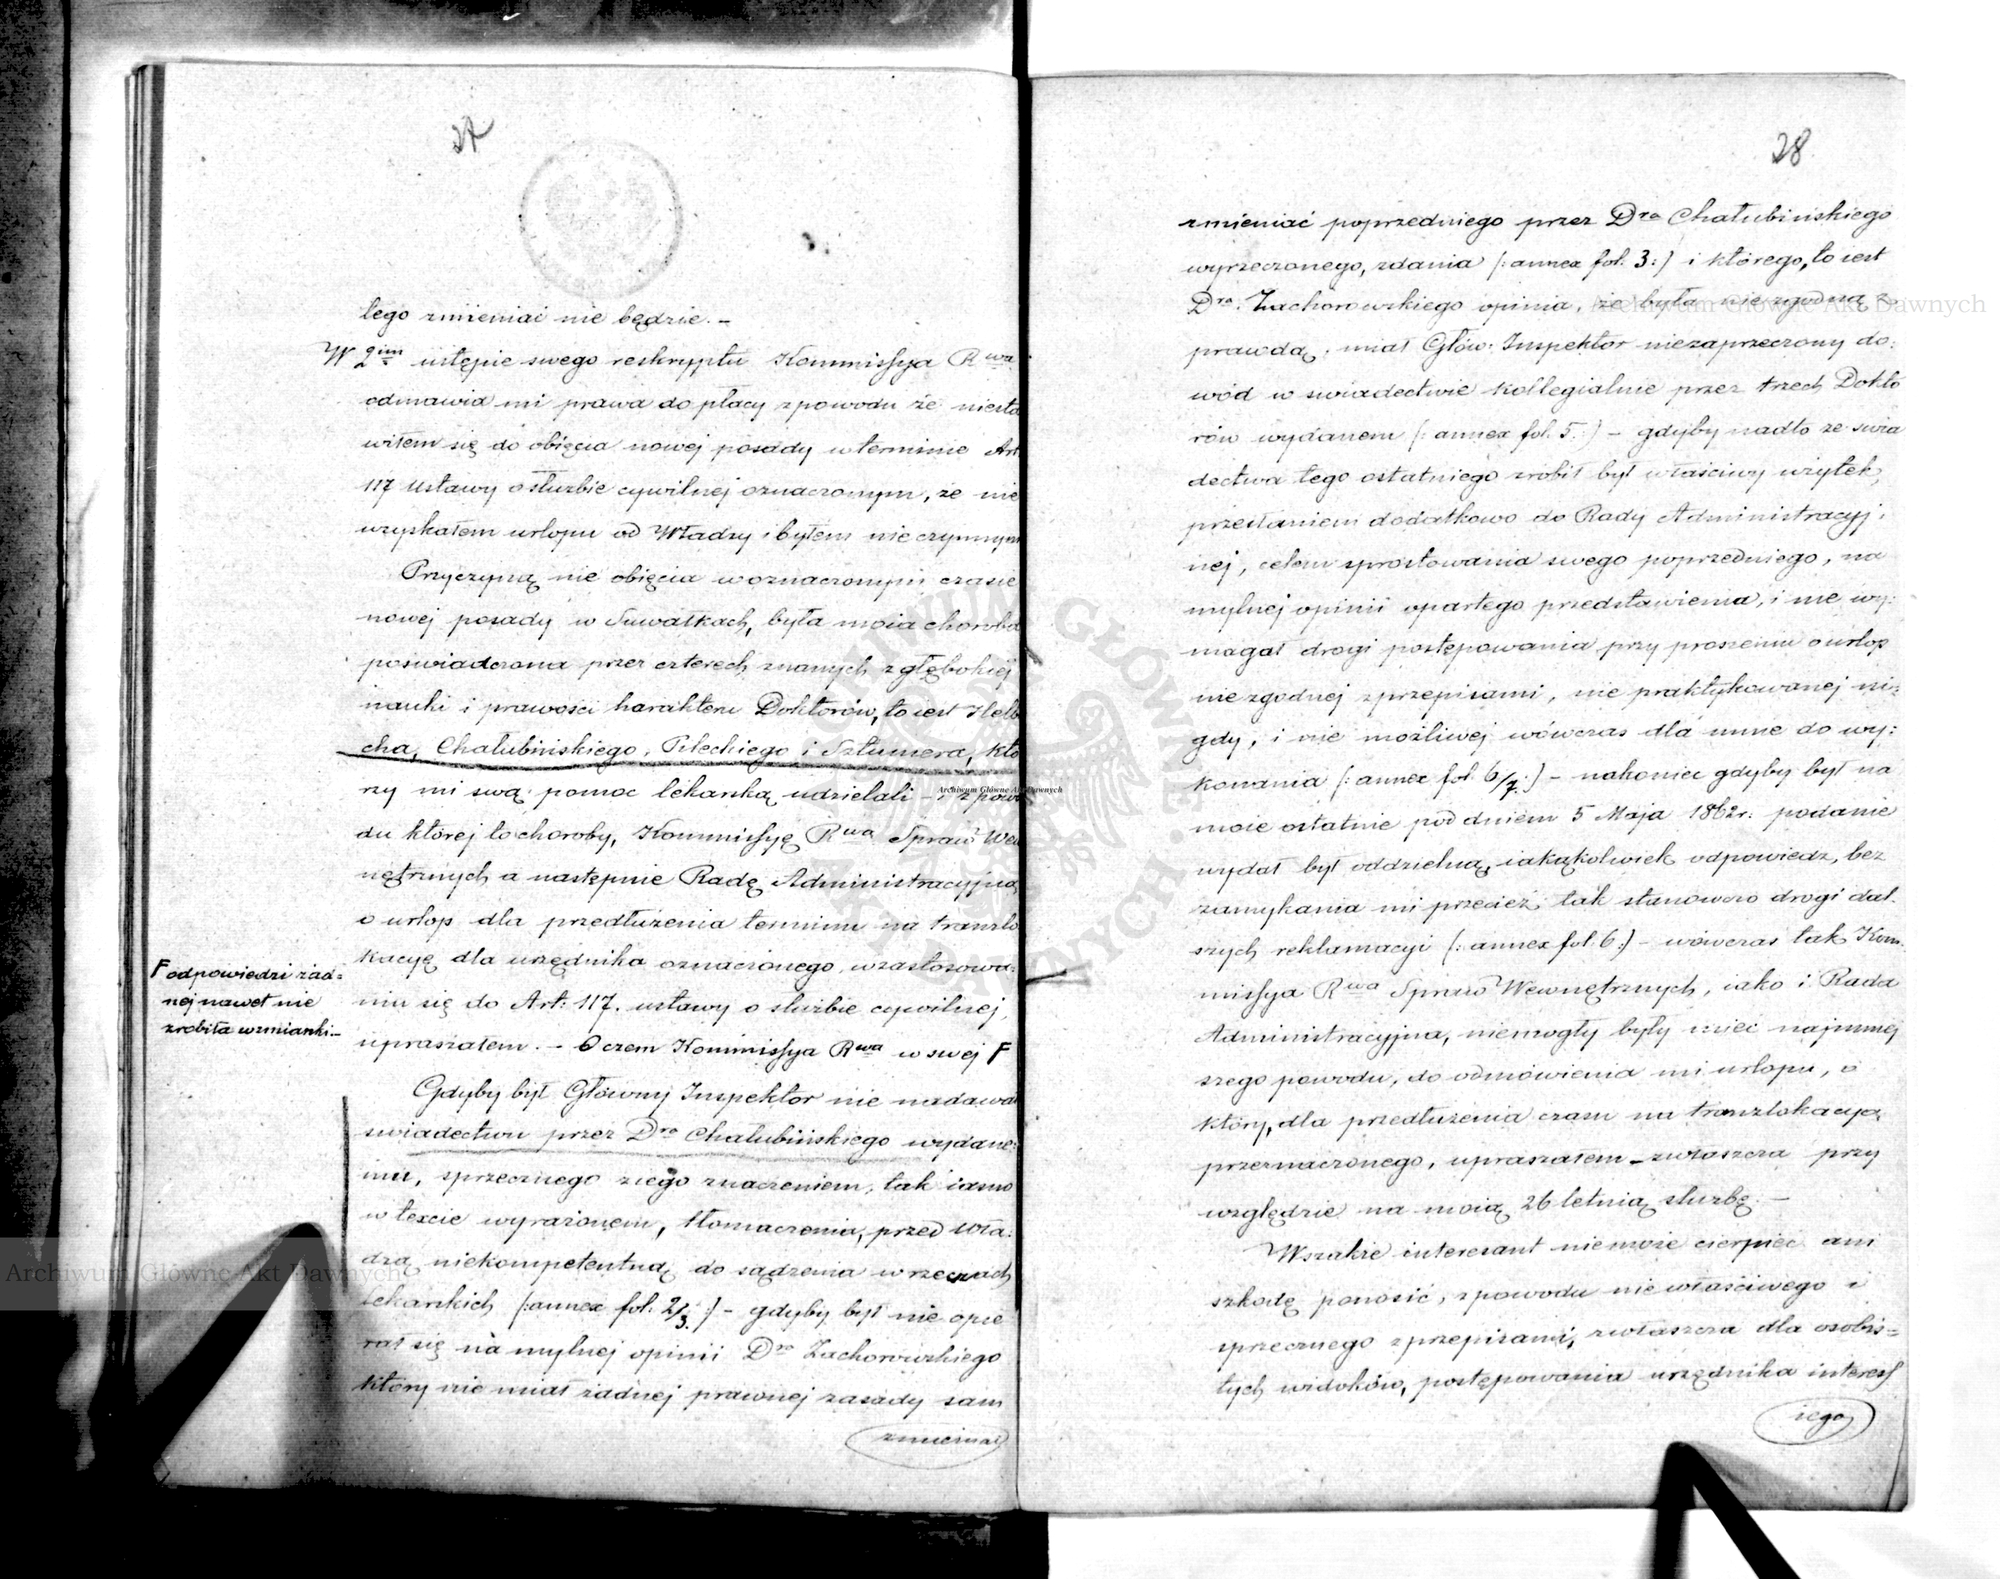 27
tego zmieniać nie będzie. –
W 2im ustępie swego reskryptu Kommissya Rwa
odmawia mi prawa do płacy z powodu że niesta
wiłem się do obięcia nowej posady w terminie Art.
117 Ustawy o służbie cywilnej oznaczonym, że nie
uzyskałem urlopu od Władzy i byłem nie czynnym
Przyczyną nie obięcia w oznaczonym czasie
nowej posady w Suwałkach, była moia choroba
poświadczona przez czterech znanych z głębokiej
nauki i prawości harakteru Doktorów, to iest Helb
cha, Chałubińskiego, Pileckiego i Szlumera, któ
rzy mi swą pomoc lekarską udzielali – i z powo
du której to choroby, Kommissyę Rwa Spraw Wew
nętrznych a następnie Radę Administracyjną
o urlop dla przedłużenia terminu na translo
kacyę dla urzędnika oznaczonego, w zastosowa:
niu się do Art: 117. ustawy o służbie cywilnej,
upraszałem. – O czem Kommissya Rwa w swej F
F odpowiedzi żad=
nej nawet nie
zrobiła wzmianki. –
Gdyby był Główny Inspektor nie nadawał
świadectwu przez Dra Chałubińskiego wydane:
mu, sprzecznego z iego znaczeniem, tak iasno
w texcie wyrażonem, tłomaczenia, przed Wła:
dzą niekompetentną do sądzenia w rzeczach
lekarskich (: annex fol. 2/3. :) – gdyby był nie opie
rał się na mylnej opinii Dra Zachorowskiego
który nie miał żadnej prawnej zasady sam
zmieniać
28
zmieniać poprzedniego przez Dra Chałubińskiego
wyrzeczonego, zdania (: annex fol. 3 :) i którego, to iest
Dra Zachorowskiego opinia, że była niezgodną z
prawdą, miał Głów: Inspektor niezaprzeczony do:
wód w świadectwie kollegialnie przez trzech Dokto
rów wydanem (: annex fol. 5. :) – gdyby nadto ze świa
dectwa tego ostatniego zrobił był właściwy użytek,
przesłaniem dodatkowo do Rady Administracyj:
nej, celem sprostowania swego poprzedniego, na
mylnej opinii opartego przedstawienia, i nie wy:
magał drogi postępowania przy proszeniu o urlop
niezgodnej z przepisami, nie praktykowanej ni:
gdy, i nie możliwej wówczas dla mnie do wy:
konania (: annex fol. 6/7. :) – nakoniec gdyby był na
moie ostatnie pod dniem 5 Maja 1862 r: podanie
wydał był oddzielną, iakąkolwiek odpowiedz, bez
zamykania mi przecież tak stanowczo drogi dal.
szych reklamacyi (: annex fol. 6 :) – wówczas tak Kom.
missya Rwa Spraw Wewnętrznych, iako i Rada
Administracyjna, niemogły były mieć najmniej
szego powodu, do odmówienia mi urlopu, o
który, dla przedłużenia czasu na translokacyą
przeznaczonego, upraszałem – zwłaszcza przy
względzie na moią 26 letnią służbę. –
Wszakże interesant niemoże cierpieć ani
szkodę ponosić, z powodu nie właściwego i
sprzecznego z przepisami, zwłaszcza dla osobis=
tych widoków, postępowania urzędnika interess
iego
Archiwum Główne Akt Dawnych
Archiwum Główne Akt Dawnych
Archiwum Główne Akt Dawnych
ARCHIWUM GŁÓWNE AKT DAWNYCH